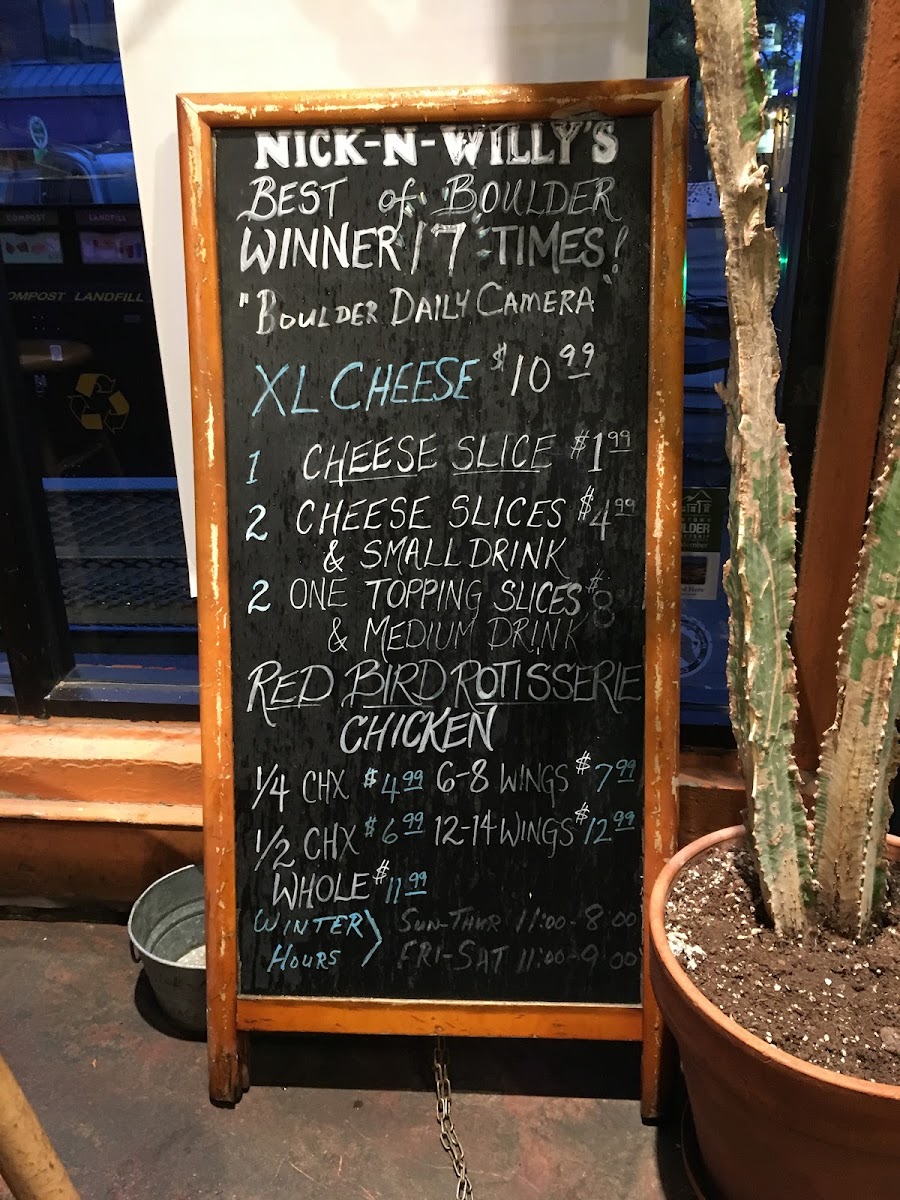 NICK-N-WILLY'S
BEST of BOULDER
WINNER 17 TIMES!
"BOULDER DAILY CAMERA"
XL CHEESE $10.99
1 CHEESE SLICE $1.99
2 CHEESE SLICES $4.99
& SMALL DRINK
2 ONE TOPPING SLICES $8
& MEDIUM DRINK
RED BIRD ROTISSERIE
CHICKEN
1/4 CHX $4.99 6-8 WINGS $7.99
1/2 CHX $6.99 12-14 WINGS $12.99
WHOLE $11.99
WINTER HOURS
SUN-THUR 11:00-8:00
FRI-SAT 11:00-9:00
COMPOST LANDFILL
COMPOST LANDFILL